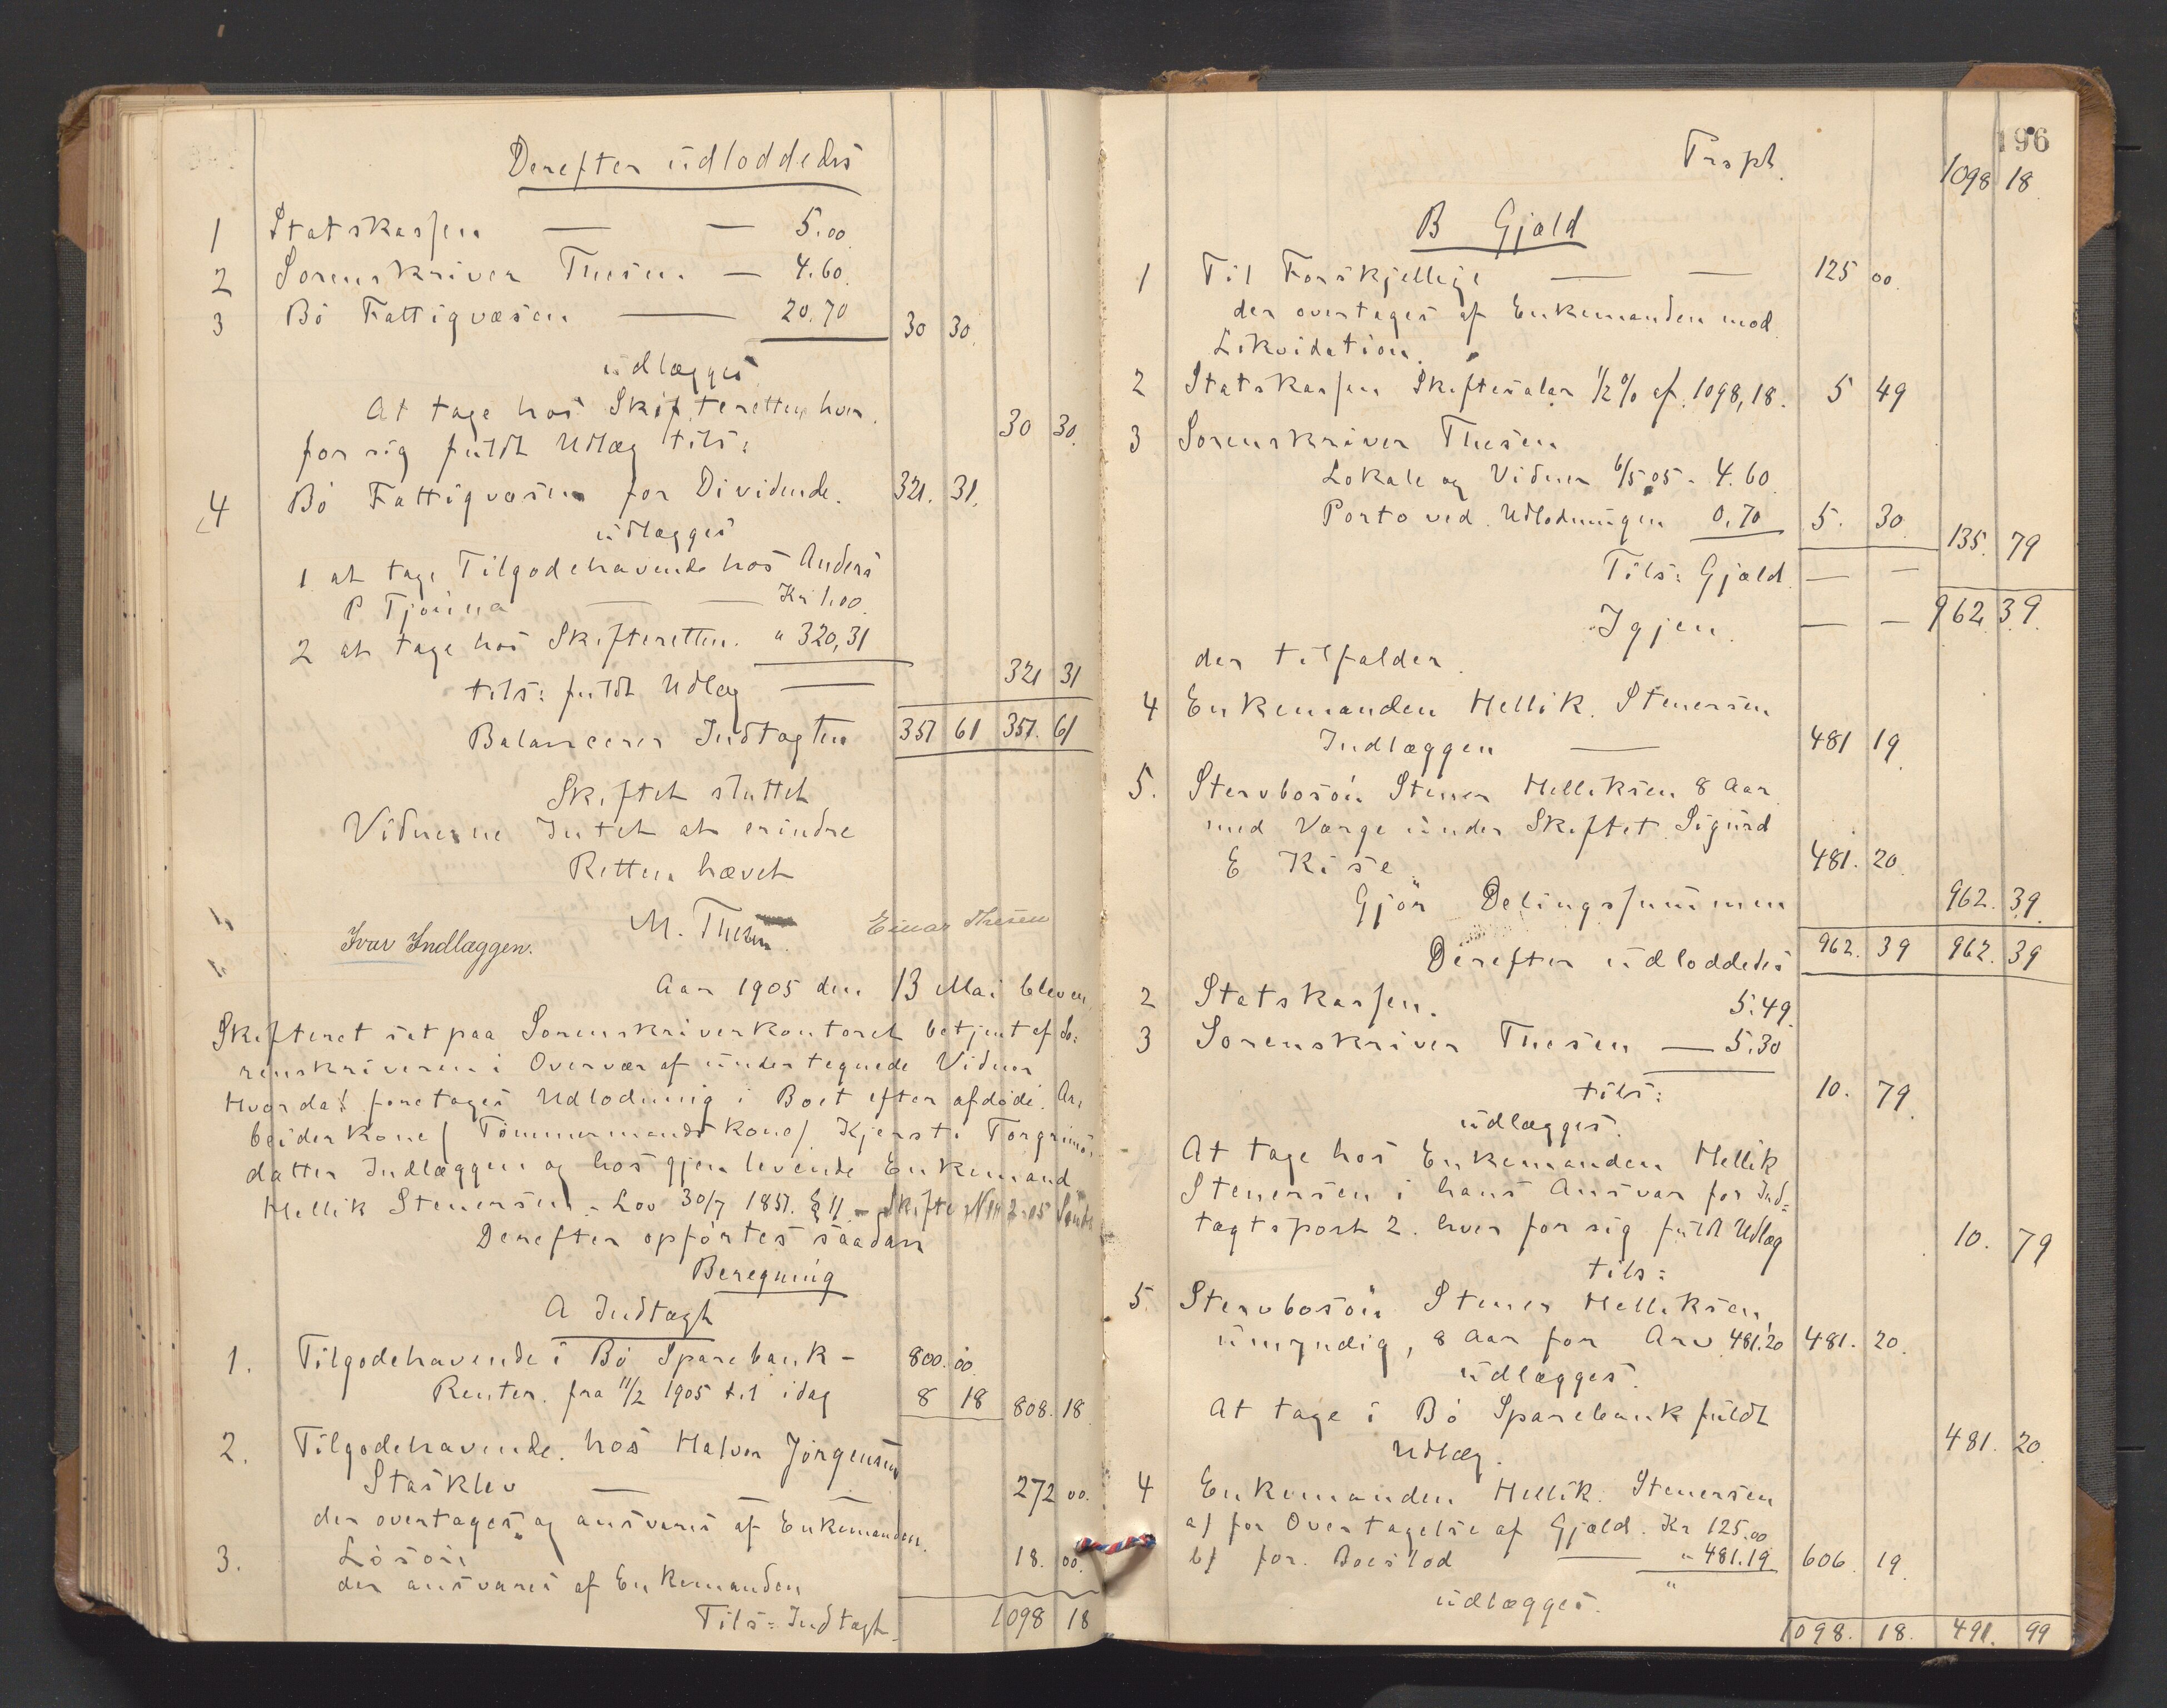 Derefter udloddedes
1 Statskassen — — 5.00
2 Sorenskriver Thesen — 4.60.
3 Bö Fattigvæsen — 20.70 30 30.
udlægges
At tage hos Skifteretten hver
for sig fuldt Udlæg tils: 30 30.
4 Bö Fattigvæsen for Dividende. 321. 31.
udlægges
1 at tage Tilgodehavende hos Anders
P Tjønna — — Kr 1.00.
2 at tage hos Skifteretten. " 320,31
tils: fuldt Udlæg — 321 31
Balancerer Indtagten 351 61 351. 61
Skiftet sluttet
Vidnerne Intet at erindre
Retten hævet
M. Thesen Einar Thesen
Ivar Indlæggen.
Aar 1905 den 13 Mai bleven
Skifteret sat paa Sorenskriverkontoret betjent af So-
renskriveren i Overvær af undertegnede Vidner
Hvorda foretages Udlodning i Boet efter afdöde Ar-
beiderkone/ Tömmermandskone/ Kjersti Torgrims-
datter Indlæggen og hos gjenlevende Enkemand
Hellik Stenersen. - Lov 30/7 1851. § 11 - Skifte 2-05
Derefter opförtes saadan
Beregning
A Indtægt
1. Tilgodehavende i Bö Sparebank - 800. 00
Renter. fra 11/2 1905 til idag 8 18 808. 18
2. Tilgodehavende. hos Halvor Jörgensen
Stasklev — — 272 00.
der overtages og ansvares af Enkemanden.
3. Lösöre 18. 00.
der ansvares af Enkemanden
Tils: Indtægt 1098 18
196
Trspt. 1098 18
B Gjæld
1 Til Forskjellige — — 125 00.
der overtages af Enkemanden mod
Likvidation.
2 Statskassen Skiftesalær 1/2 % af. 1098,18. 5 49
3 Sorenskriver Thesen
Lokale og Vidner 6/5 05 - 4.60
Porto ved Udlodningen 0.70 5. 30 135. 79
Tils: Gjæld — —
Igjen — — 962 39.
der tilfalder
4 Enkemanden Hellik. Stenersen
Indlæggen — 481 19
5. Stervbosön Stener Helliksen 8 Aar
med Værge under Skiftet Sigurd
E Kise. 481. 20
Gjör Delingssummen 962. 39.
962. 39 962. 39
Derefter udloddedes
2 Statskassen. 5.49.
3 Sorenskriver Thesen — 5.30
tils: 10. 79.
udlægges.
At tage hos Enkemanden Hellik
Stenersen i hans Ansvar for Ind-
tagtspost 2. hver for sig fuldt Udlæg
tils: 10. 79
5. Stervbosön Stener Helliksen
umyndig, 8 Aar for Arv 481.20 481. 20.
udlægges.
At tage i Bö Sparebank fuldt
Udlæg. 481. 20
4 Enkemanden Hellik. Stenersen
a/ for Overtagelse af Gjæld. Kr 125.00
b/ for. Boeslod — " 481.19 606 19.
udlægges. "
1098. 18. 491. 99